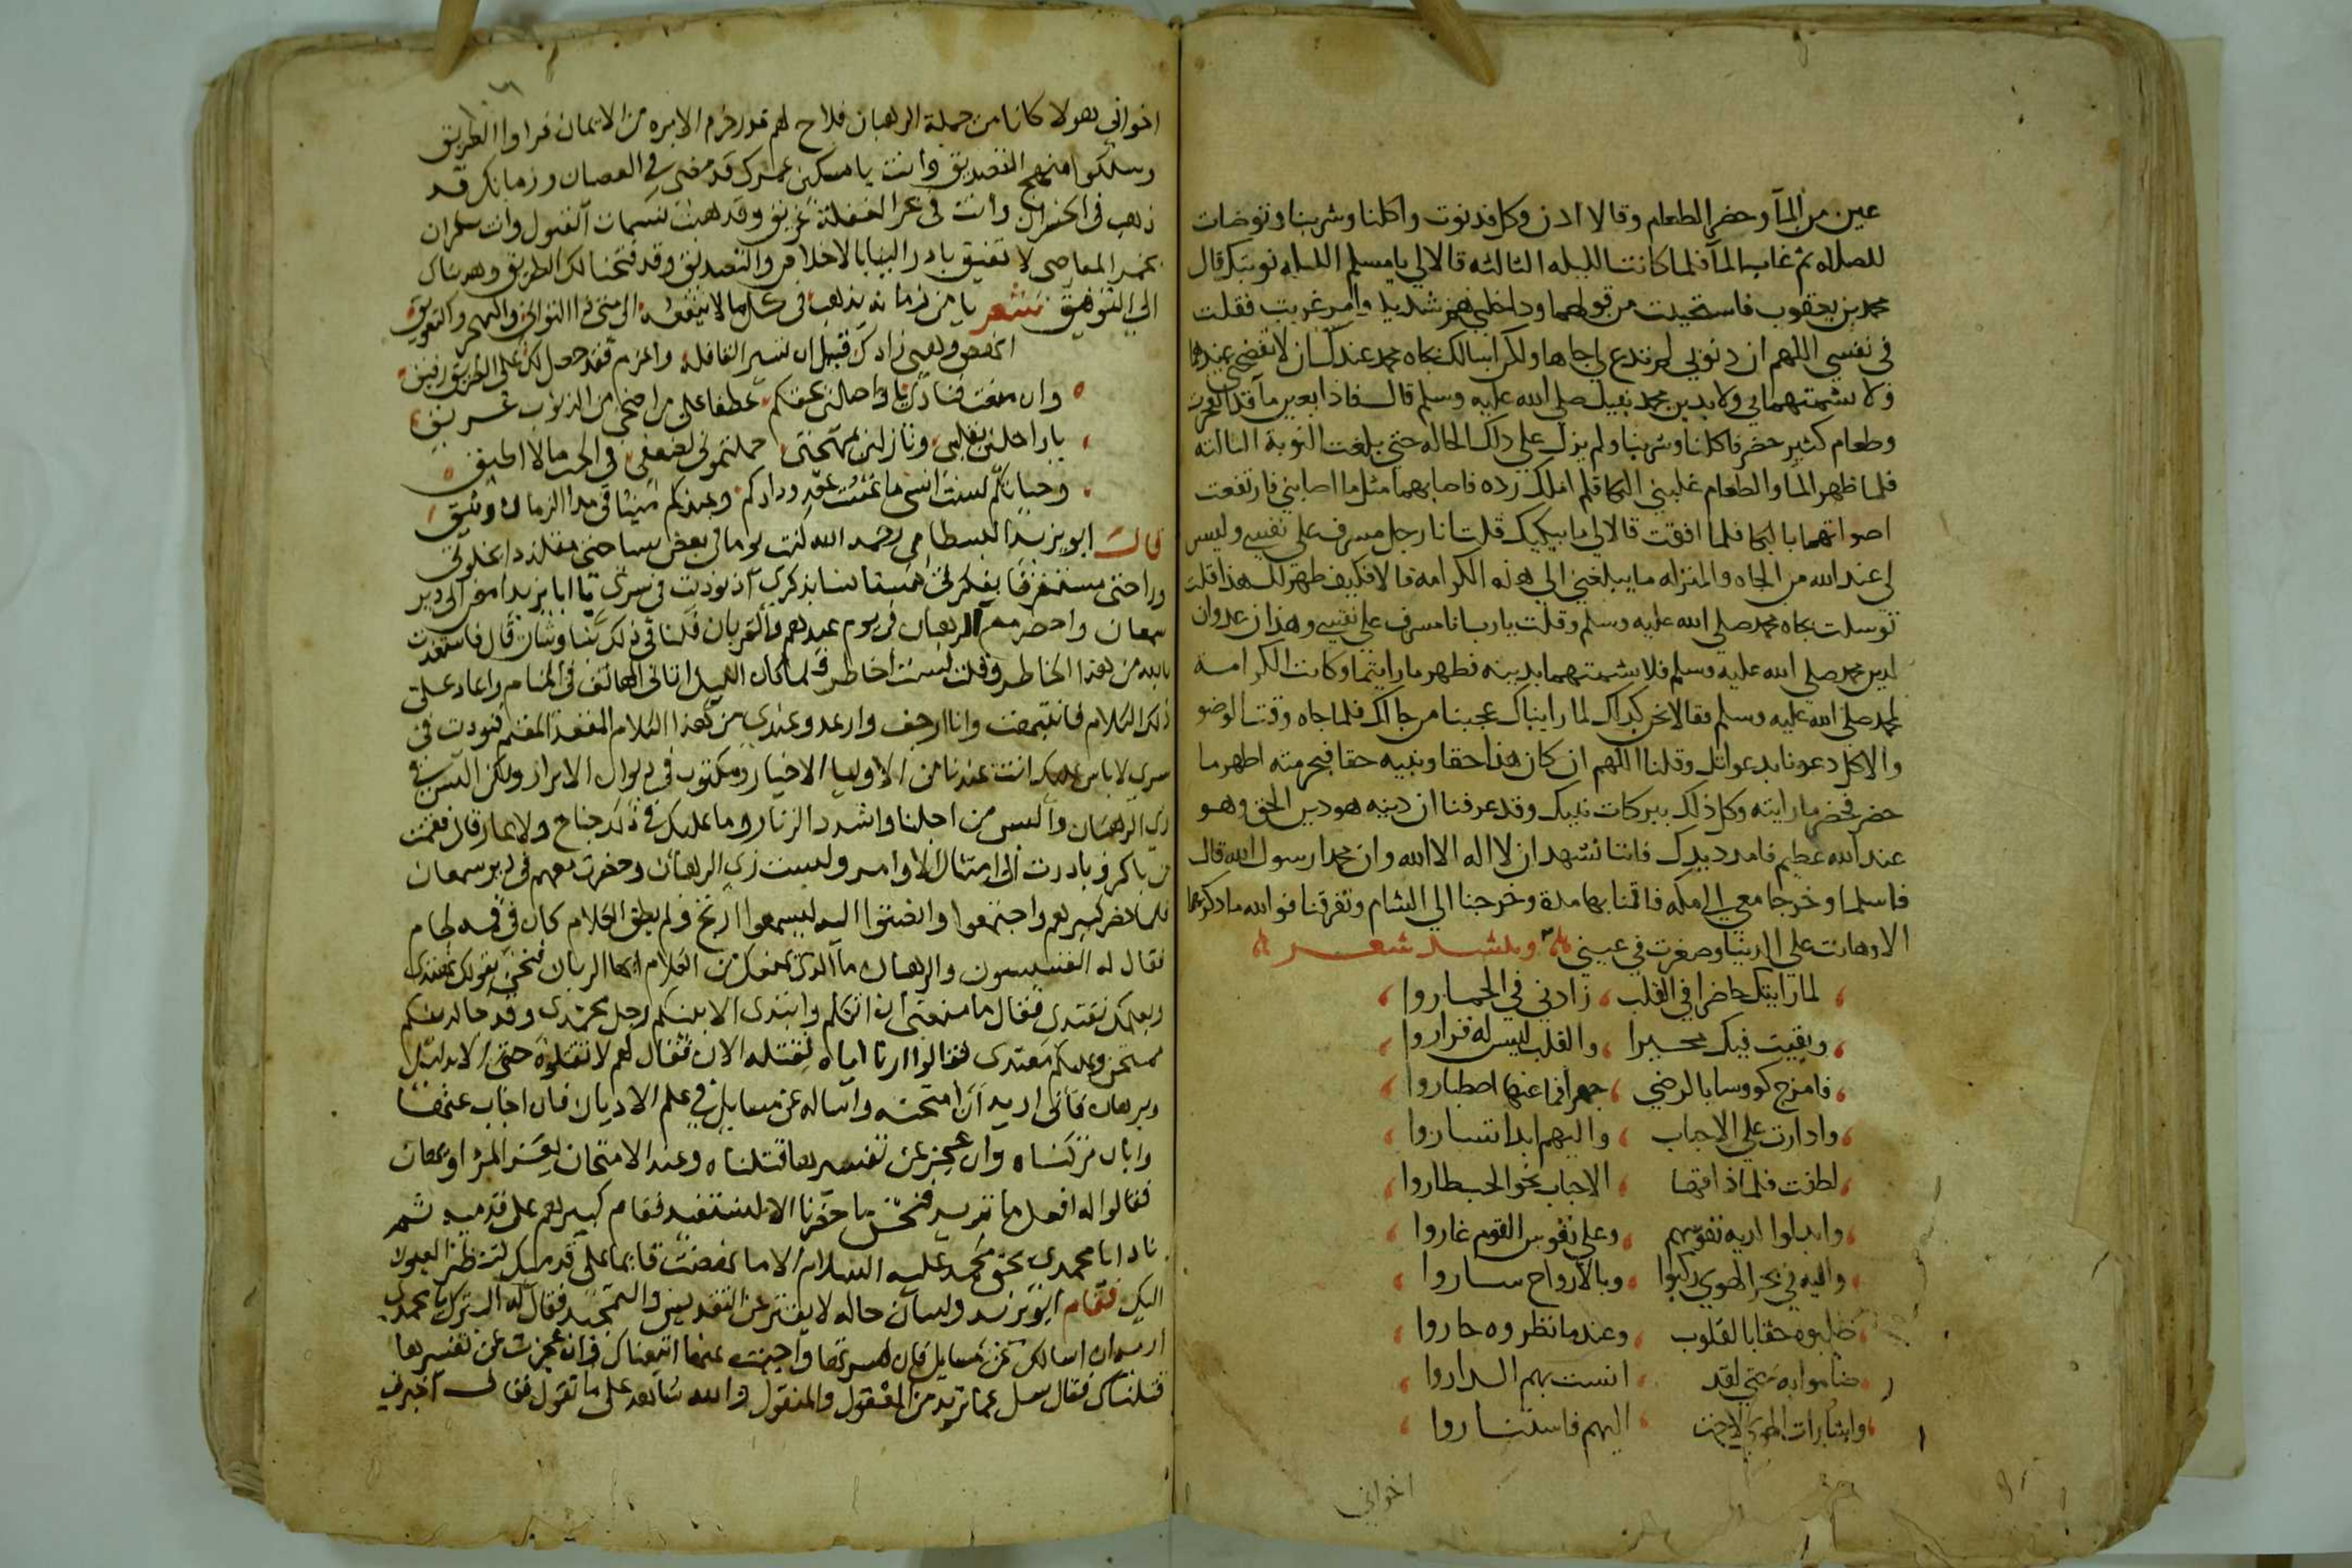 عين من المآ وحضر الطعام وقالا ادن وكل فدنوت واكلنا وشربنا وتوضات
للصلاه ثم غاب المآ فلما كانت الليله الثالثه قالا لي يا مسلم الليله نوبتك قال
محمد بن يعقوب فاستحييت من قولهما وداخلني هم شديد وامر غريب فقلت
في نفسي اللهم ان ذنوبي لم تدع لي جاها ولكن اسالك بجاه محمد عندك ان لا تفضحني عندهما
ولا تشمتهما بي ولا بدين محمد نبيك صلى الله عليه وسلم قال فاذا بعين مآ قد انفجرت
وطعام كثير حضر فاكلنا وشربنا ولم يزل على ذلك الحاله حتى بلغت النوبة الثالثه
فلما ظهر الما والطعام غلبني البكا فلم املك رده فاصابهما مثل ما اصابني فارتفعت
اصواتهما بالبكا فلما افقت قالا لي ما يبكيك قلت انا رجل مسرف على نفسي وليس
لي عند الله من الجاه والمنزله ما يبلغني الي هذه الكرامه قالا فكيف ظهر لك هذا قلت
توسلت بجاه محمد صلى الله عليه وسلم وقلت يا رب انا مسرف على نفسي وهذان عدوان
لدين محمد صلى الله عليه وسلم فلا تشمتهما بدينه فظهر ما رايتما وكانت الكرامة
لمحمد صلى الله عليه وسلم فقالا نحن كذلك لما رايناك عجبنا من حالك فلما جاه وقت الوضو
والاكل دعونا بدعواتك وقلنا اللهم ان كان هذا حقا ونبيه حقا فبحرمته اظهر ما
حضر فحضر ما رايته وكل ذلك ببركات نبيك وقد عرفنا ان دينه هو دين الحق وهو
عند الله عظيم فامدد يدك فاننا نشهد ان لا اله الا الله وان محمدا رسول الله قال
فاسلما وخرجا معي الى مكه فاقمنا بها مدة وخرجنا الي الشام وتفرقنا فوالله ما ذكرتهما
الا وهانت على الدنيا وصغرت في عيني وينشد شعر
لما رايتك حاضرا في القلب زادني في الخماروا
وبقيت فيك محيرا والقلب ليس له قراروا
فامزج كووسا بالرضي جهرا فما عنها اصطباروا
وادارت على الاحباب واليهم ابدا تساروا
لطفت فلما ذاقها الاحباب نحو الحب طاروا
وابدلوا اديه نفوسهم وعلى نفوس القوم غاروا
واليه في بحر الهوي ركبوا وبالارواح ساروا
طلبوه حقا بالقلوب وعندما نظروه حاروا
ضاموا به حتى لقد انست بهم الداروا
واشارات الهوي لاحت اليهم فاستناروا
اخواني
اخواني هولا كانا من جملة الرهبان فلاح لهم نور من الايمان فراوا الطريق
وسلكوا منهج التصديق وانت يا مسكين عمرك قد مضى في العصيان وزمانك قد
ذهب في الخسران وانت في بحر الغفلة غريق وقد هبت نسمات القبول وانت سكران
بخمر المعاصى لا تفيق بادر الينا بالاخلاص والتصديق وقد فتحنا لك الطريق وهديناك
الى التوفيق شعر يا من زمانه يذهب في كل ما لا ينفعه الى متى ذا التوانى والهجر والتعويق
انهض وهيى زادك قبل ان تسير القافله واعزم فقد حصل لك على الطريق رفيق
يا راحلين بقلبى ونازلين بمهجتى حملتمونى لضعفى في الحب ما لا اطيق
وحياتكم لست انسى ما عشت عقد ودادكم
قال ابو يزيد البسطامى رحمه الله كنت يوما في بعض سياحتى متلذذا بخلوتى
وراحتى مستغرقا بفكرتى مستانسا بذكرى اذ نوديت في سرى يا ابا يزيد امض الى دير
سمعان واحضر مع الرهبان في يوم عيدهم والقربان فلنا في ذلك نبا وشان قال فاستعذت
بالله من هذا الخاطر وقلت لست اخاطر فلما كان الليل اتانى الهاتف في المنام واعاد على
ذلك الكلام فانتبهت وانا ارجف وارعد وعندى من هذا الكلام المقعد المقيم فنوديت في
سرى لا باس عليك انت عندنا من الاوليا الاخيار ومكتوب في ديوان الابرار ولكن البس
زى الرهبان والبس من اجلنا واشدد الزنار وما عليك في ذلك جناح ولا عار قال فقمت
من باكر وبادرت الى امتثال الاوامر ولبست زى الرهبان وحضرت معهم في دير سمعان
فلما حضر كبيرهم واجتمعوا وانصتوا اليه ليسمعوا ارتج ولم يطق الكلام كان في فمه لجام
فقال له القسيسون والرهبان ما الذى يمنعك من الكلام ايها الربان فنحن بقولك نهتدى
وبعلمك نقتدى فقال ما منعنى ان اتكلم وابتدى الا بينكم رجل محمدى وقد جا لدينكم
ممتحن وعليكم معتدى فقالوا ارنا اياه نقتله الان فقال لهم لا تقتلوه حتى الا بدليل
وبرهان فانى اريد ان امتحنه واساله عن مسايل في علم الاديان فان اجاب عنها
وابان تركناه وان عجز عن تفسيرها قتلناه وعند الامتحان يعز المرء او يهان
فقالوا له افعل ما تريد فنحن ما حضرنا الا لنستفيد فقام كبيرهم على قدميه ثم
نادا يا محمدى بحق محمد عليه السلام الا ما نهضت قايما على قدميك لتنظر العيون
اليك فقام ابو يزيد ولسان حاله لا يفتر عن التقديس والتمجيد فقال له البترك يا محمدى
اريد ان اسالك عن مسايل فان فسرتها واجبت عنها اتبعناك وان عجزت عن تفسيرها
قتلناك فقال سل عما تريد من المعقول والمنقول والله شاهد على ما نقول فقال اخبرنى